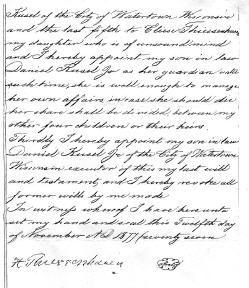 Kusel of the City of Watertown Wisconsin
and the last fifth to Elise Thiessenhusen
my daughter who is of unsound mind
and I hereby appoint my son in law
Daniel Kusel Jr as her guardian until
such time, she is well enough to manage
her own affairs in case she should die
her share shall be divided between my
other four children or their heirs.
Thirdly I hereby appoint my son in law
Daniel Kusel Jr of the City of Watertown
Wisconsin executor of this my last will
and testament, and I hereby revoke all
former wills by me made
In witness whereof I have here unto
set my hand and seal this Twelfth day
of November A.D. 1877 seventy seven
H Thiessenhusen